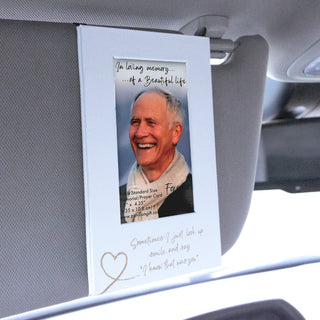 In loving memory....
...of a Beautiful life
For
Standard Size
Memorial/Prayer Card
Sometimes I just look up
smile and say
"I know that was you"